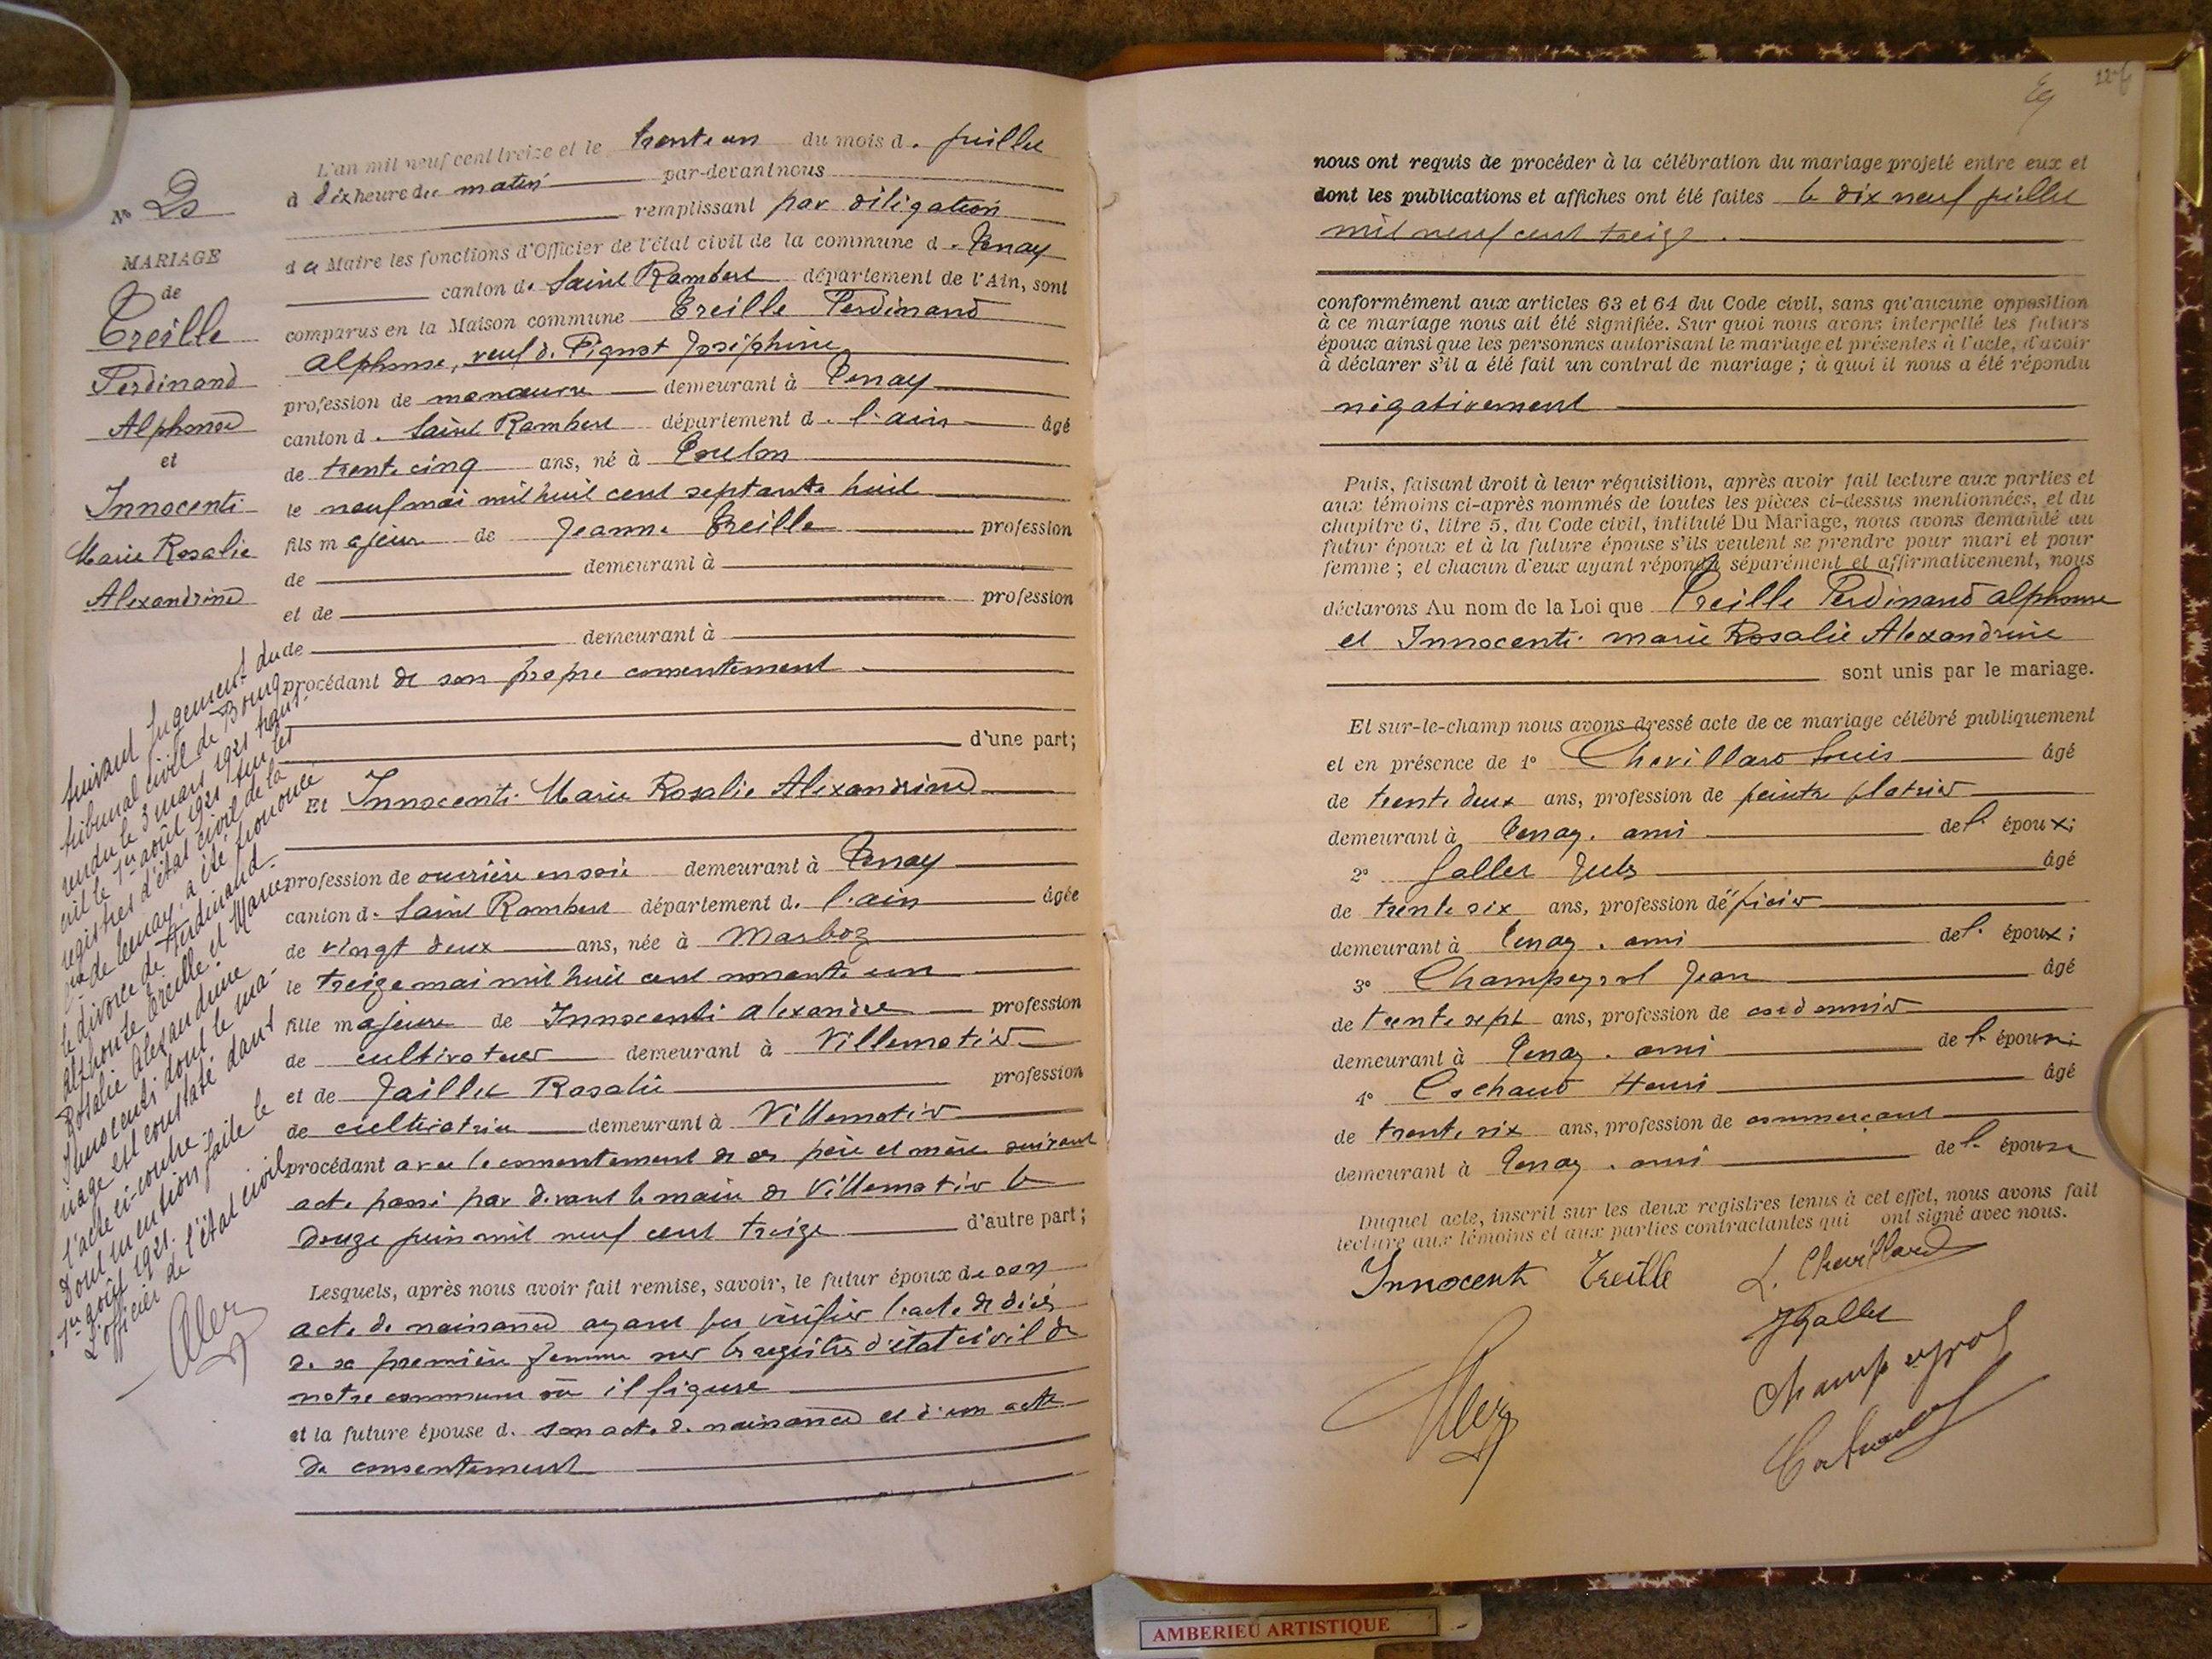 L'an mil neuf cent treize et le trente un du mois d. juillet
à dix heure du matin par-devant nous
remplissant par déligation
d u Maire les fonctions d'Officier de l'état civil de la commune d. Tenay
canton de Saint Rambert département de l'Ain, sont
comparus en la Maison commune Treille Ferdinand
Alphonse, veuf d. Pignot Joséphine
profession de manœuvre demeurant à Tenay
canton d. Saint Rambert département d. l'ain âgé
de trente cinq ans, né à Toulon
le neuf mai mil huit cent septante huit
fils majeur de Jeanne Treille profession
de demeurant à
et de profession
de demeurant à
procédant de son propre consentement
d'une part;
Et Innocenti Marie Rosalie Alexandrine
profession de ouvrière en soie demeurant à Tenay
canton d. Saint Rambert département d. l'ain âgée
de vingt deux ans, née à Marboz
le treize mai mil huit cent nonante un
fille majeure de Innocenti Alexandre profession
de cultivateur demeurant à Villemotier
et de Jaillet Rosalie profession
de cultivatrice demeurant à Villemotier
procédant avec le consentement de ses père et mère suivant
acte passé par devant le maire de Villemotier le
douze juin mil neuf cent treize d'autre part;
Lesquels, après nous avoir fait remise, savoir, le futur époux de son
acte de naissance ayant pu vérifier l'acte de décès
de sa première femme sur les registres d'état civil de
notre commune où il figure
et la future épouse d. son acte de naissance et d'un acte
de consentement
N° 20
MARIAGE
de
Treille
Ferdinand
Alphonse
et
Innocenti
Marie Rosalie
Alexandrine
Suivant Jugement du
tribunal civil de Bourg
rendu le 3 mars 1921 trans-
crit le 1er août 1921 sur les
registres d'état civil de la
cne de Tenay, a été prononcé
le divorce de Ferdinand
Alphonse Treille et Marie
Rosalie Alexandrine
Innocenti dont le ma-
riage est constaté dans
l'acte ci-contre.
Dont mention faite le
1er août 1921.
L'officier de l'état civil
126
nous ont requis de procéder à la célébration du mariage projeté entre eux et
dont les publications et affiches ont été faites le dix neuf juillet
mil neuf cent treize.
conformément aux articles 63 et 64 du Code civil, sans qu'aucune opposition
à ce mariage nous ait été signifiée. Sur quoi nous avons interpellé les futurs
époux ainsi que les personnes autorisant le mariage et présentes à l'acte, d'avoir
à déclarer s'il a été fait un contrat de mariage ; à quoi il nous a été répondu
négativement
Puis, faisant droit à leur réquisition, après avoir fait lecture aux parties et
aux témoins ci-après nommés de toutes les pièces ci-dessus mentionnées, et du
chapitre 6, titre 5, du Code civil, intitulé Du Mariage, nous avons demandé au
futur époux et à la future épouse s'ils veulent se prendre pour mari et pour
femme ; et chacun d'eux ayant répondu séparément et affirmativement, nous
déclarons Au nom de la Loi que Treille Ferdinand Alphonse
et Innocenti marie Rosalie Alexandrine
sont unis par le mariage.
Et sur-le-champ nous avons dressé acte de ce mariage célébré publiquement
et en présence de 1° Chevillard Louis âgé
de trente deux ans, profession de peintre platrier
demeurant à Tenay. ami de l' époux;
2° Galler Jules âgé
de trente six ans, profession d'épicier
demeurant à Tenay. ami de l' époux;
3° Champeyrol Jean âgé
de trente sept ans, profession de cordonnier
demeurant à Tenay. ami de l'
4° Henri âgé
de trente six ans, profession de commerçant
demeurant à Tenay. ami de l' épouse
Duquel acte, inscrit sur les deux registres tenus à cet effet, nous avons fait
lecture aux témoins et aux parties contractantes qui ont signé avec nous.
Innocenti Treille L. Chevillard
JGaller
Champeyrol
AMBERIEU ARTISTIQUE